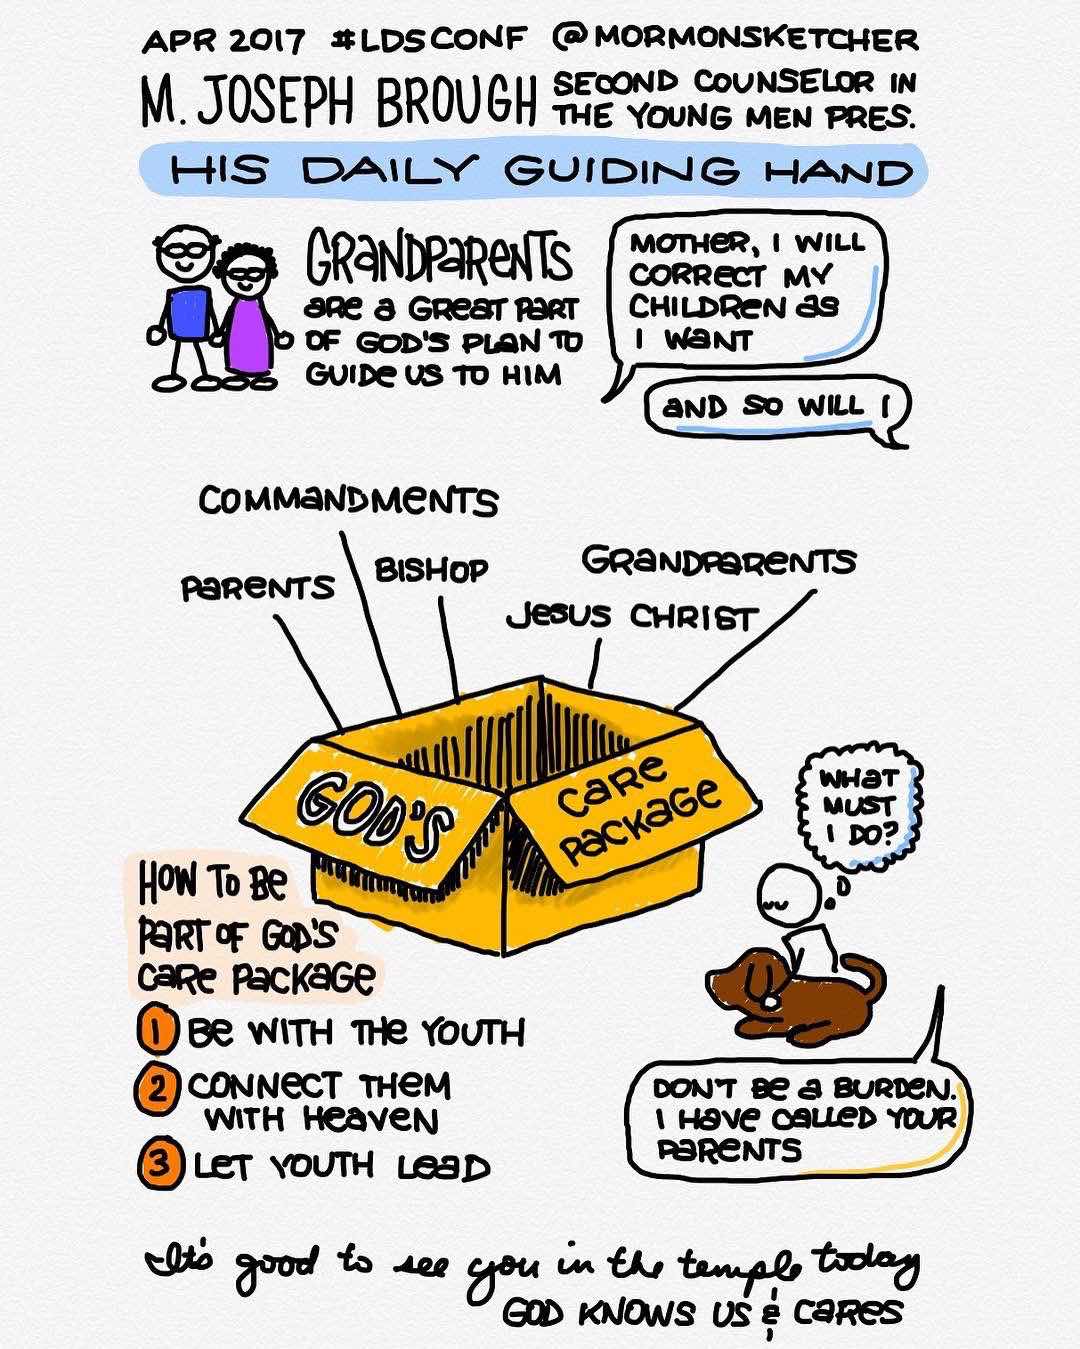 APR 2017 #LDSCONF @MORMONSKETCHER
M. JOSEPH BROUGH SECOND COUNSELOR IN
THE YOUNG MEN PRES.
HIS DAILY GUIDING HAND
GRANDPARENTS
ARE A GREAT PART
OF GOD'S PLAN TO
GUIDE US TO HIM
MOTHER, I WILL
CORRECT MY
CHILDREN AS
I WANT
AND SO WILL I
COMMANDMENTS
PARENTS
BISHOP
GRANDPARENTS
JESUS CHRIST
GOD'S
CARE
PACKAGE
WHAT
MUST
I DO?
HOW TO BE
PART OF GOD'S
CARE PACKAGE
1 BE WITH THE YOUTH
2 CONNECT THEM
WITH HEAVEN
3 LET YOUTH LEAD
DON'T BE A BURDEN.
I HAVE CALLED YOUR
PARENTS
It's good to see you in the temple today
GOD KNOWS US & CARES